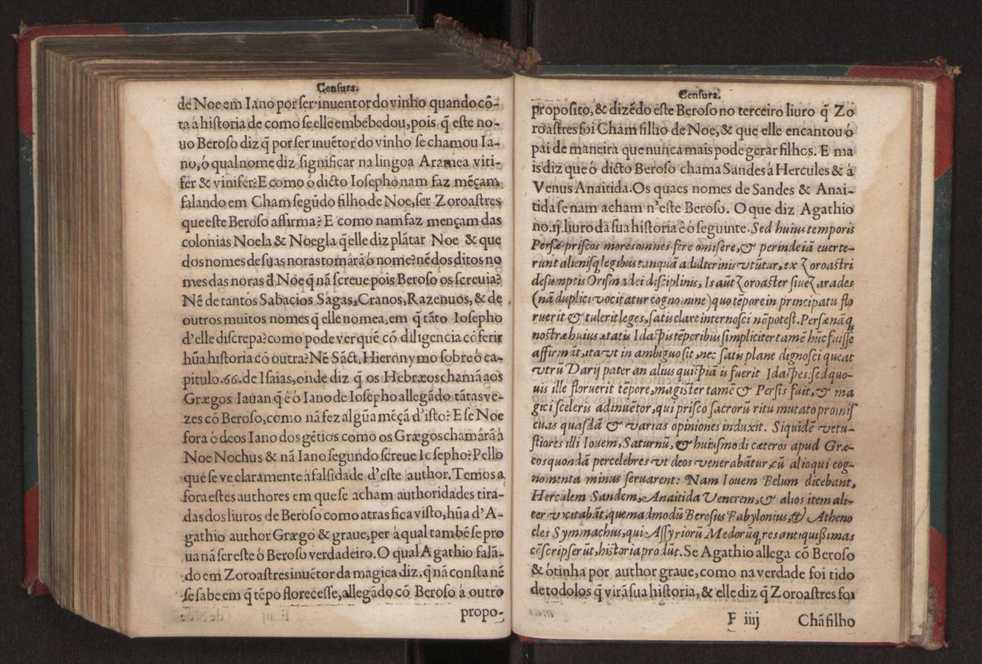 Censura.
de Noe em Iano por ser inuentor do vinho quando cõ-
ta a historia de como se elle embebedou, pois q̃ este no-
uo Beroso diz q̃ por ser inuẽtor do vinho se chamou Ia-
no, ó qual nome diz significar na lingoa Aramea viti-
fer & vinifer? E como ó dicto Iosepho nam faz mẽçam
falando em Cham segũdo filho de Noe, ser Zoroastres
que este Beroso affirma? E como nam faz mençam das
colonias Noela & Noegla q̃ elle diz plãtar Noe & que
dos nomes de suas noras tomárã ó nome? nẽ dos ditos no
mes das noras d̃ Noe q̃ nã screue pois Beroso os screuia?
Nẽ de tantos Sabacios Sagas, Cranos, Razenuos, & de
outros muitos nomes q̃ elle nomea, em q̃ tãto Iosepho
d'elle discrepa? como pode ver quẽ cõ diligencia cõferir
hũa historia cõ outra? Nẽ Sãct. Hieronymo sobre ó ca-
pitulo. 66. de Isaias, onde diz q̃ os Hebræos chamã aos
Grægos Iauan q̃ é ó Iano de Iosepho allegãdo tãtas ve-
zes cõ Beroso, como nã fez algũa mẽçã d'isto? E se Noe
fora ó deos Iano dos gẽtios como os Grægos chamárã à
Noe Nochus & nã Iano segundo screue Iosepho? Pello
que se ve claramente á falsidade d'este author. Temos a
fora estes authores em que se acham authoridades tira-
das dos liuros de Beroso como atras fica visto, hũa d'A-
gathio author Græго & graue, per á qual tambẽ se pro
ua nã ser este ó Beroso verdadeiro. O qual Agathio falã-
do em Zoroastres inuẽtor da magica diz, q̃ nã consta nẽ
se sabe em q̃ tẽpo florecesse, allegãdo cõ Beroso à outro
propo-
Censura.
proposito, & dizẽdo este Beroso no terceiro liuro q̃ Zo
roastres foi Cham filho de Noe, & que elle encantou ó
pai de maneira que nunca mais pode gerar filhos. E ma
is diz que ó dicto Beroso chama Sandes à Hercules & à
Venus Anaitida. Os quaes nomes de Sandes & Anai-
tida se nam acham n'este Beroso. O que diz Agathio
no. ij. liuro da sua historia é o seguinte. Sed huius temporis
Persæ priscos mores omnes fere omisere, & perinde iã euerte-
runt alienisq̃ legibus tanquã adulterinis vtũtur, ex Zoroastri
desumptis Orismadei disciplinis, Is aũt Zoroaster siue Zarades
(nã duplici vocitatur cognomine) quo tẽpore in principatu flo
ruerit & tulerit leges, satis clare internosci nõ potest. Persæ nãq̃
nostræ huius ætatis Idaspis tẽporibus simpliciter tamẽ hũc fuisse
affirmãt, ita vt in ambiguo sit, nec satis plane dignosci queat
vtrũ Darij pater an alius quispiã is fuerit Idaspes. sed quo-
uis ille floruerit tẽpore, magister tamẽ & Persis fuit, & ma
gici sceleris adinuẽtor, qui prisco sacrorũ ritu mutato promis
cuas quasdã & varias opiniones induxit. Siquidẽ vetu-
stiores illi Iouem, Saturnũ, & huiusmodi cæteros apud Græ-
cos quondã percelebres vt deos venerabãtur, cũ alioqui cog-
nomenta minus seruarent: Nam Iouem Belum dicebant,
Herculem Sandem, Anaitida Venerem, & alios item ali-
ter vocitabãt, quemadmodũ Berosus Babylonius, & Atheno
cles Symmachius, qui Assyriorũ Medorũq̃ res antiquissimas
cõscripserũt, historia produt. Se Agathio allega cõ Beroso
& ó tinha por author graue, como na verdade foi tido
de todolos q̃ virã sua historia, & elle diz q̃ Zoroastres foi
F iiij Chã filho